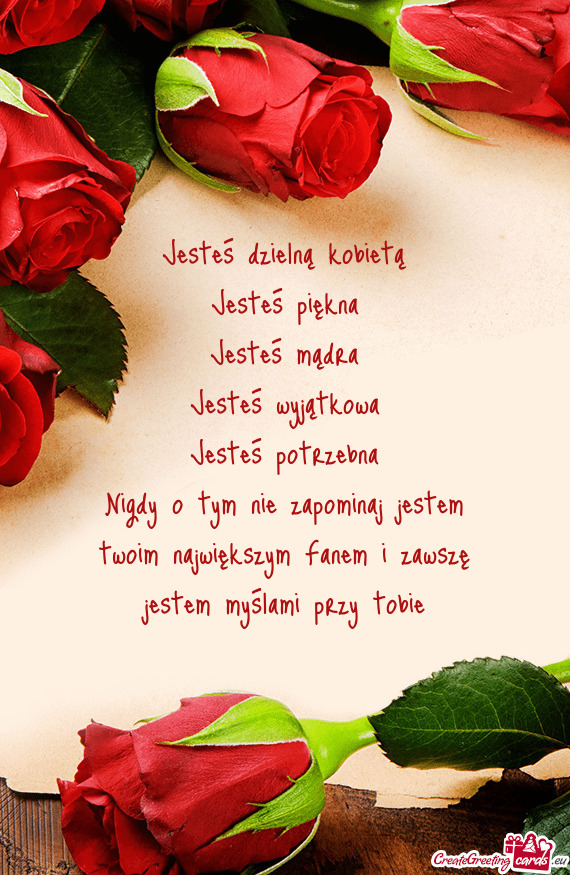 Jesteś dzielną kobietą
Jesteś piękna
Jesteś mądra
Jesteś wyjątkowa
Jesteś potrzebna
Nigdy o tym nie zapominaj jestem
twoim największym fanem i zawszę
jestem myślami przy tobie
CreateGreetingcards.eu